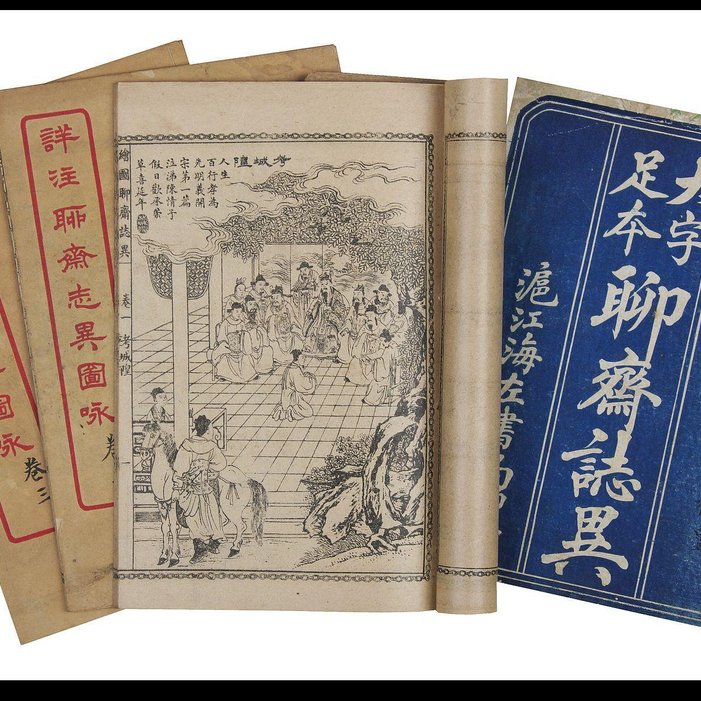 詳注聊齋志異圖咏
卷
圖咏
卷三
繪圖聊齋誌異
卷一
考城隍
一
考城隍
人生
百行孝為
先明義開
宗第一篇
泣涕陳情子
假日歡承
草喜延年
大字
足本
聊齋誌異
滬江海左書局